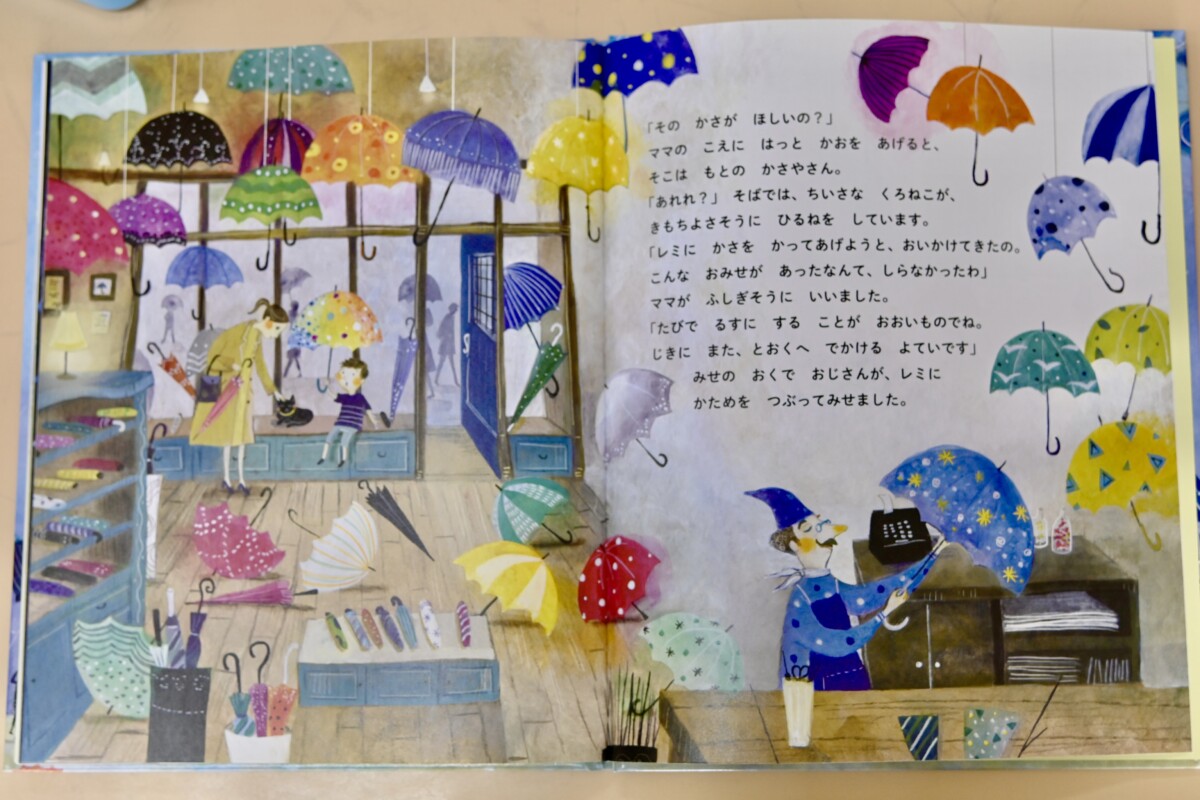 「その　かさが　ほしいの？」
ママの　こえに　はっと　かおを　あげると、
そこは　もとの　かさやさん。
「あれれ？」　そばでは、ちいさな　くろねこが、
きもちよさそうに　ひるねを　しています。
「レミに　かさを　かってあげようと、おいかけてきたの。
こんな　おみせが　あったなんて、しらなかったわ」
ママが　ふしぎそうに　いいました。
「たびで　るすに　する　ことが　おおいものでね。
じきに　また、とおくへ　でかける　よていです」
みせの　おくで　おじさんが、レミに
かためを　つぶってみせました。